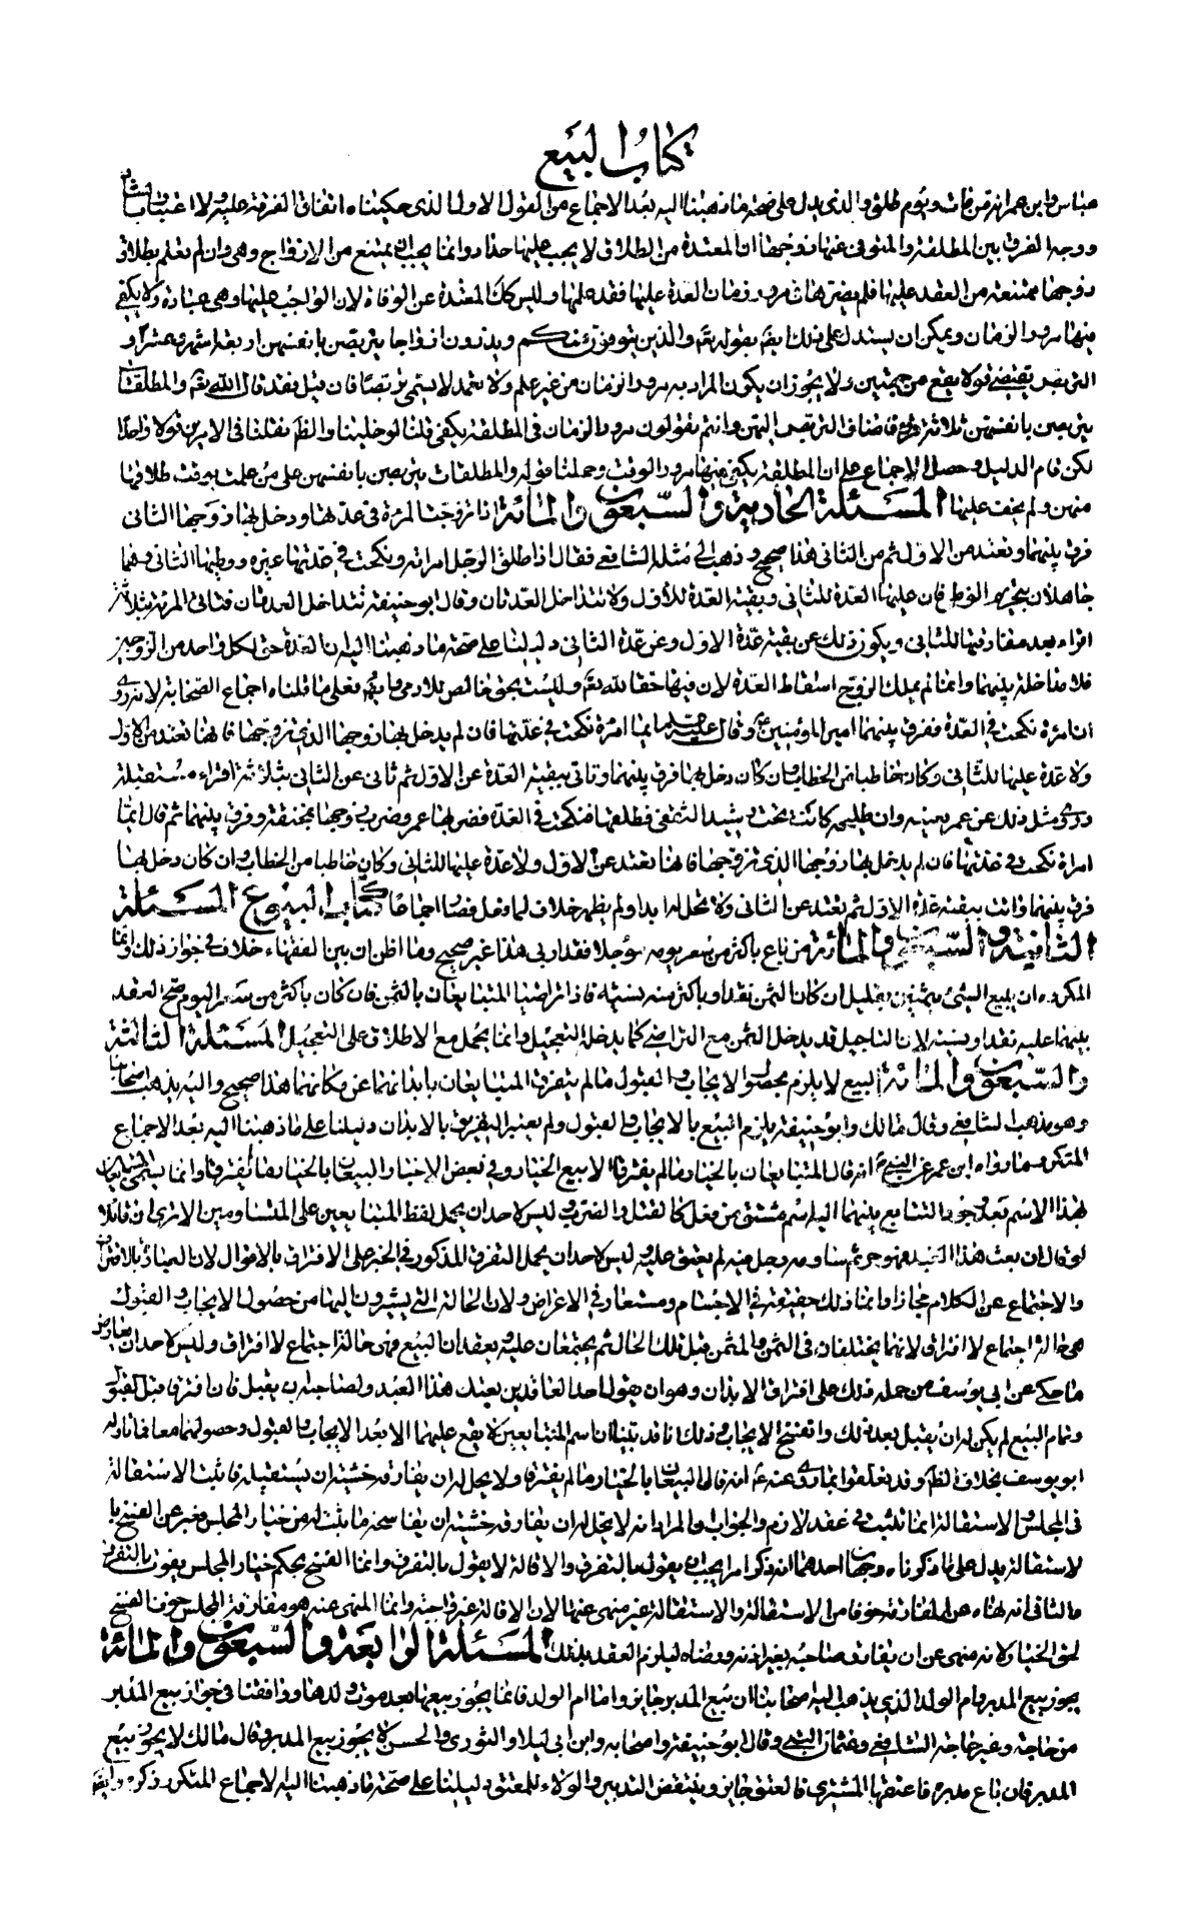 كتاب البيع
عباس وابن عمر انه من مات ويوم طلق والذي يدل على صحة ما ذهبنا اليه بعد الاجماع من القول الاول الذي حكيناه اتفاق الفرقة عليه ولا اعتبار
ووجه الفرق بين المطلقة والمتوفى عنها زوجها ان المعتدة من الطلاق لا يجب عليها حداد وانما يجب ان يمتنع من الازواج وهي وان لم تعلم بطلاق
زوجها ممتنعة من العقد عليها فلم يضرها مرور زمان العدة عليها فقد علمها وليس كك المعتدة عن الوفاة لان الواجب عليها وهي عبادة ولا يكفي
فيها مرور الزمان ويمكن ان يستدل على ذلك ايضا بقوله تعم والذين يتوفون منكم ويذرون ازواجا يتربصن بانفسهن اربعة اشهر وعشرا و
التربص يقتضي قولا يقع من جهتهن ولا يجوز ان يكون المراد به مرور الزمان من غير علم ولا تعمد لا يسمى تربصا فان قيل فقد قال الله تعم والمطلقات
يتربصن بانفسهن ثلاثة قروء فاضاف التربص اليهن وانتم تقولون مرور الزمان في المطلقة يكفي قلنا لو خلينا والظ لقلنا في الامرين قولا واحدا
لكن قام الدليل وحصل الاجماع على ان المطلقة يكفي فيها مرور الوقت وحملنا قوله والمطلقات يتربصن بانفسهن على من علمت بوقت طلاقها
منهن ولم يخف عليها المسئلة الحادية والسبعون والمائة اذا تزوجت المرئة في عدتها ودخل بها زوجها الثاني
فرق بينهما وتعتد من الاول ثم من الثاني هذا صحيح وذهب الى مثله الشافعي فقال اذا طلق الرجل امراته ونكحت في عدتها غيره ووطيها الثاني وهما
جاهلان بتحريم الوطي فان عليها العدة للثاني وبقية العدة للأول ولا تتداخل العدتان وقال ابو حنيفة تتداخل العدتان فتاتى المرئة بثلاثة
اقراء بعد مفارقتها للثاني ويكون ذلك عن بقية عدة الاول وعن عدة الثاني دليلنا على صحة ما ذهبنا اليه ان العدة حق لكل واحد من الزوجين
فلا مداخلة بينهما وانما لم يملك الزوج اسقاط العدة لان فيها حقا لله تعم وليست بحق خالص للادمي وايضا فعلى ما قلناه اجماع الصحابة لانه روى
ان امرئة نكحت في العدة ففرق بينهما امير المؤمنين ع وقال ايما امرئة نكحت في عدتها فان لم يدخل بها زوجها الذي تزوجها فانها تعتد من الاول
ولا عدة عليها للثاني وكان خاطبا من الخطاب وان كان دخل بها فرق بينهما وتاتى ببقية العدة عن الاول ثم تاتى عن الثاني بثلاثة اقراء مستقبلة
وروى مثل ذلك عن عمر بعينه وان طليحة كانت تحت رشيد الثقفي فطلقها فنكحت في العدة فضربها عمر وضرب زوجها بمخفقة وفرق بينهما ثم قال ايما
امرئة نكحت في عدتها فان لم يدخل بها زوجها الذي تزوجها فانها تعتد عن الاول ولا عدة عليها للثاني وكان خاطبا من الخطاب وان كان دخل بها
فرق بينهما واتت ببقية عدة الاول ثم تعتد عن الثاني ولا تحل له ابدا ولم يظهر خلاف لما فعل فصار اجماعا كتاب البيوع المسئلة
الثانية والسبعون والمائة من باع باكثر من سعر يومه مؤجلا فقد اربى هذا غير صحيح وما اظن ان بين الفقهاء خلاف في جواز ذلك وانما
المكروه ان يبيع الشئ بثمنين بقليل ان كان الثمن نقدا وباكثر منه نسيئة فاذا تراضيا المتبايعان بالثمن فان كان باكثر من سعر اليوم صح العقد
بينهما عليه نقدا ونسية لان التاجيل قد يدخل الثمن مع التراضي كما يدخله التعجيل وانما يحمل مع الاطلاق على التعجيل المسئلة الثالثة
والسبعون والمائة البيع لا يلزم بحصول الايجاب والقبول ما لم يتفرق المتبايعان بابدانهما عن مكانهما هذا صحيح واليه يذهب اصحابنا
وهو مذهب الشافعي وقال مالك وابو حنيفة يلزم البيع بالايجاب والقبول ولم يعتبر التفريق بالابدان دليلنا على ما ذهبنا اليه بعد الاجماع
المتكرر ما رواه ابن عمر عن النبي انه قال المتبايعان بالخيار ما لم يفترقا الا بيع الخيار وفي بعض الاخبار البيعان بالخيار ما لم يفترقا وانما يسمى المتبايعان
بهذا الاسم بعد وجود التبايع بينهما اليه اسم مشتق من فعل كالقتل والضرب وليس لاحد ان يحمل لفظ المتبايعين على المتساومين الا ترى ان قائلا
لو قال ان بعت هذا العبد فهو حر ثم ساومه رجل فيه لم يعتق عليه وليس لاحد ان يحمل التفرق المذكور في الخبر على الافتراق بالاقوال لان العبارة بالافتراق
والاجتماع عن الكلام مجاز وانما ذلك حقيقة في الاجسام ومستعار في الاعراض ولان الحالة التي يشيرون اليها من حصول الايجاب والقبول
هي حالة اجتماع لا افتراق لانهما يختلفان في الثمن والمثمن قبل تلك الحال ثم يجتمعان عليه ويعقدان البيع فهي حالة اجتماع لا افتراق وليس لاحد ان يعارض
ما حكي عن ابي يوسف من حمله ذلك على افتراق الابدان وهو ان يقول احد العاقدين بعتك هذا العبد ولصاحبه ان يقبل فان افترقا قبل القبول
وتمام البيع لم يكن له ان يقبل بعد ذلك وانفسخ الايجاب وذلك انا قد بينا ان اسم المتبايعين لا يقع عليهما الا بعد الايجاب والقبول وحصولهما معا فما تاوله
ابو يوسف بخلاف الظ وقد تعلقوا بما روى عنه ع انه قال البيعان بالخيار ما لم يفترقا ولا يحل له ان يفارقه خشية ان يستقيله فاثبت الاستقالة
في المجلس والاستقالة انما تثبت في عقد لازم والجواب والمراد انه لا يحل له ان يفارقه خشية ان يفاسخه ما ثبت له من خيار المجلس فعبر عن الفسخ با
لاستقالة يدل على ما ذكرناه وجهان احدهما انه ذكر امرا يجب ان يفوت بالتفرق والاقالة لا يفوت بالتفرق وانما الفسخ بحكم خيار المجلس يفوت بالتفرق
والثاني انه نهاه عن المفارقة خوفا من الاستقالة والاستقالة غير منهي عنها لان الاقالة غير واجبة وانما المنهي عنه هو مفارقة المجلس خوف الفسخ
لحق الخيار لانه منهي عن ان يفارق صاحبه بغير اذنه ورضاه ليلزم العقد بذلك المسئلة الرابعة والسبعون والمائة
يجوز بيع المدبر وام الولد الذي يذهب اليه اصحابنا ان بيع المدبر جايز واما ام الولد فانما يجوز بيعها بعد موت ولدها ووافقنا في جواز بيع المدبر
من حاجة وغير حاجة الشافعي وعثمان البتي وقال ابو حنيفة واصحابه وابن ابي ليلا والثوري والحسن لا يجوز بيع المدبر وقال مالك لا يجوز بيع
المدبر فان باع مدبره فاعتقها المشتري فالعتق جايز وينتقض التدبير والولاء للمعتق دليلنا على صحة ما ذهبنا اليه الاجماع المتكرر ذكره وايضا